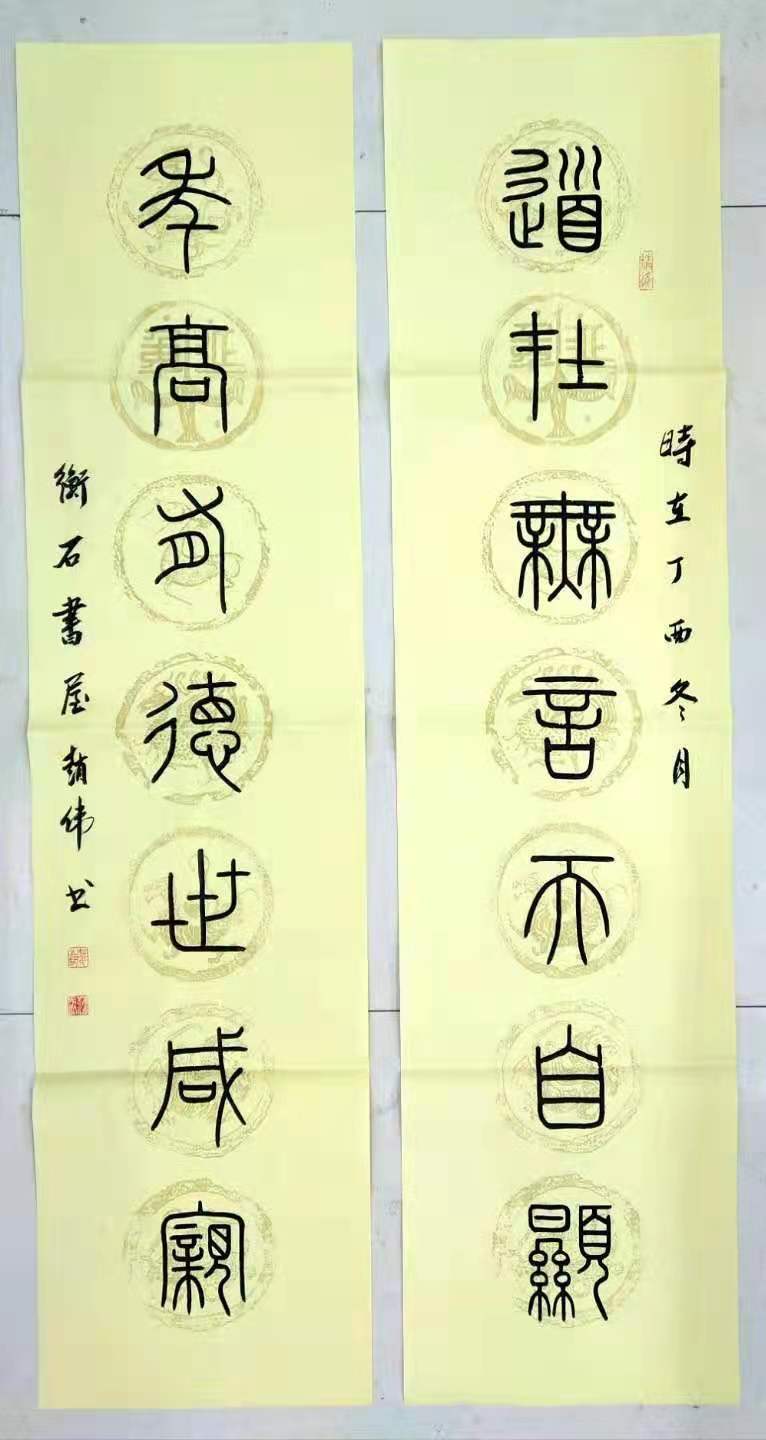 時在丁酉冬月
道在無言天自顯
年高有德世咸親
衡石書屋趙偉书